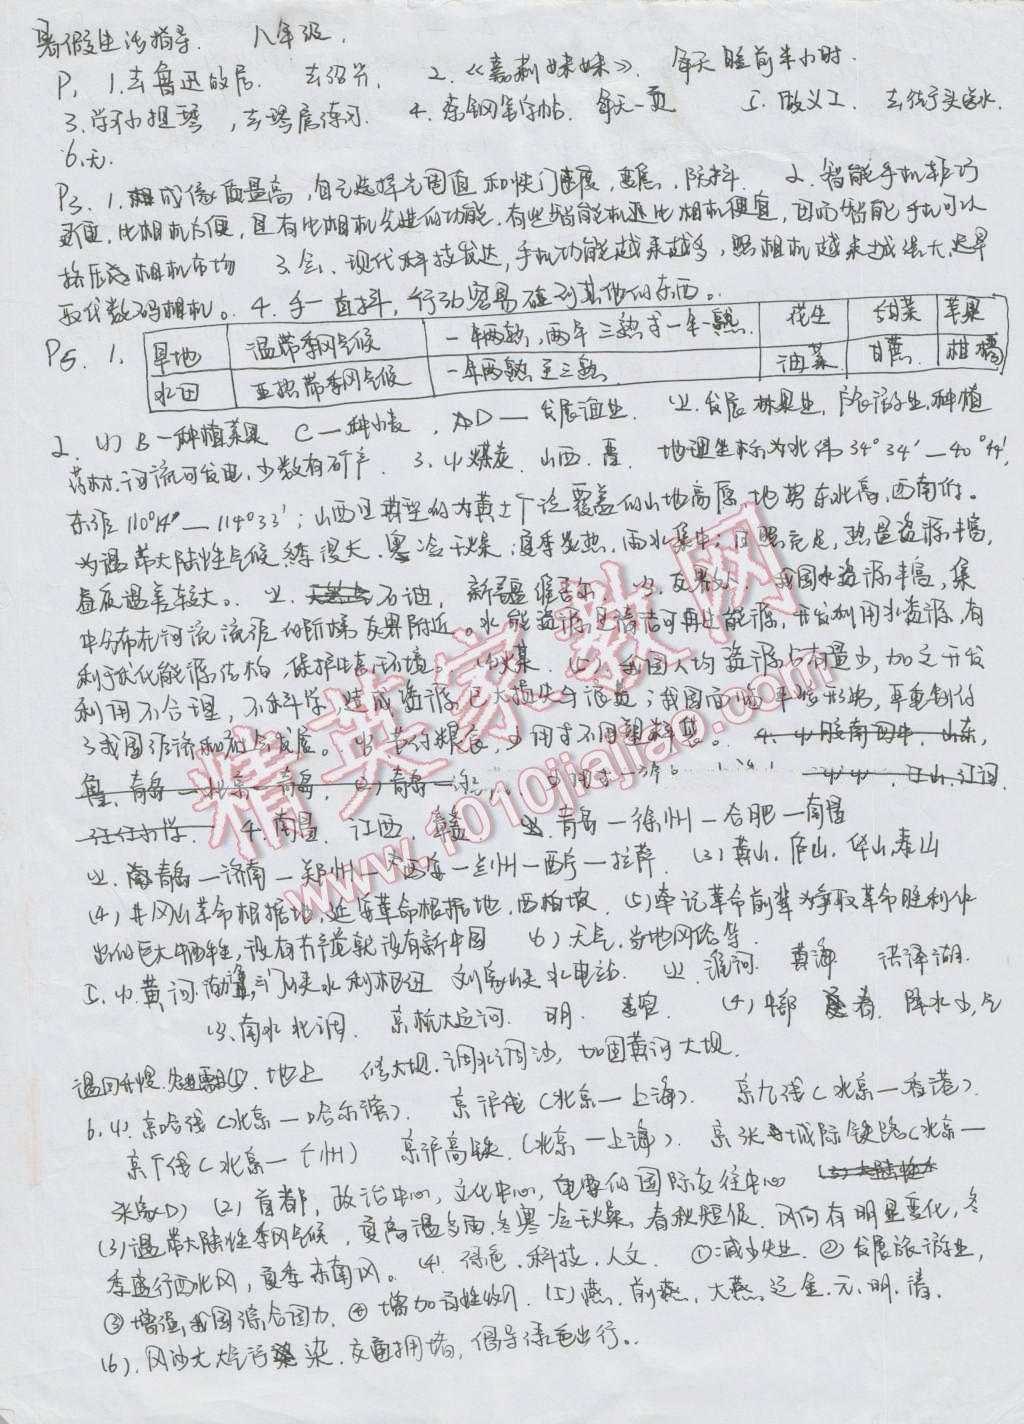 暑假生活指导. 八年级.
P1 1.去鲁迅故居. 去绍兴. 2.《茉莉妹妹》. 每天睡前半小时.
3.学习小提琴, 去琴房练习. 4.练钢笔字帖. 每天一页 5.做义工. 去街头送水.
6.无.
P3. 1.成像质量高, 自己选择光圈值和快门速度, 变焦, 防抖. 2.智能手机轻巧
便宜, 比相机方便, 且有比相机先进的功能. 有些智能机还比相机便宜, 因而智能手机可以
挤压相机市场 3.会. 现代科技发达, 手机功能越来越多, 照相机越来越强大, 迟早
取代数码相机。 4.手一直抖, 行动容易碰到其他的东西。
P5 1. 旱地 温带季风气候 一年两熟, 两年三熟或一年一熟. 花生 甜菜 苹果
水田 亚热带季风气候 一年两熟至三熟 油菜 甘蔗 柑橘
2. (1) B—种植苹果 C—种小麦, AD—发展渔业. (2).发展林果业, 旅游业, 种植
药材. 河流可发电, 少数有矿产. 3.(1)煤炭. 山西. 晋. 地理坐标为北纬34°34′—40°44′,
东经110°14′—114°33′; 山西是典型的为黄土广泛覆盖的山地高原 地势东北高, 西南低。
为温带大陆性气候 寒冷干燥; 夏季炎热, 雨水集中; 日照充足, 热量资源丰富,
昼夜温差较大。 (2). 石油, 新疆维吾尔 (3). 我国水资源丰富, 集
中分布在河流流经的阶梯交界附近。水能资源是清洁可再生能源, 开发利用水资源, 有
利于优化能源结构, 保护生态环境。 (4)煤. (5)我国人均资源占有量少, 加之开发
利用不合理, 不科学, 造成资源巨大损失与浪费; 我国面临严峻形势, 严重制约
了我国经济和社会发展。 (6)节约粮食, 少用或不用塑料袋。
4.南昌. 江西. 赣 青岛—徐州—合肥—南昌
(2). 青岛—济南—郑州—西安—兰州—西宁—拉萨. (3)黄山. 庐山. 华山. 泰山
(4)井冈山革命根据地, 延安革命根据地, 西柏坡. (5)牢记革命前辈为争取革命胜利作
出的巨大牺牲, 没有共产党就没有新中国 (6)天气. 当地网络等.
5.(1)黄河 三门峡水利枢纽 刘家峡水电站. (2).淮河. 黄海 洪泽湖.
(3)南水北调. 京杭大运河. (4)中部 春. 降水少, 气
温回升慢. (5). 地上 修大坝. 调水调沙, 加固黄河大坝.
6.(1).京哈线(北京—哈尔滨). 京沪线(北京—上海). 京九线(北京—香港).
京广线(北京—广州) 京沪高铁.(北京—上海). 京张城际铁路(北京—
张家口) (2)首都, 政治中心, 文化中心, 重要的国际交往中心
(3)温带大陆性季风气候, 夏高温多雨, 冬寒冷干燥, 春秋短促. 风向有明显变化, 冬
季盛行西北风, 夏季东南风。 (4). 绿色. 科技. 人文. ①减少失业. ②发展旅游业,
③增强我国综合国力. ④增加百姓收入. (5)燕. 前燕. 大燕. 辽. 金. 元. 明. 清.
(6).风沙大 大气污染. 交通拥堵, 倡导绿色出行。
精英家教网
www.1010jiajiao.com